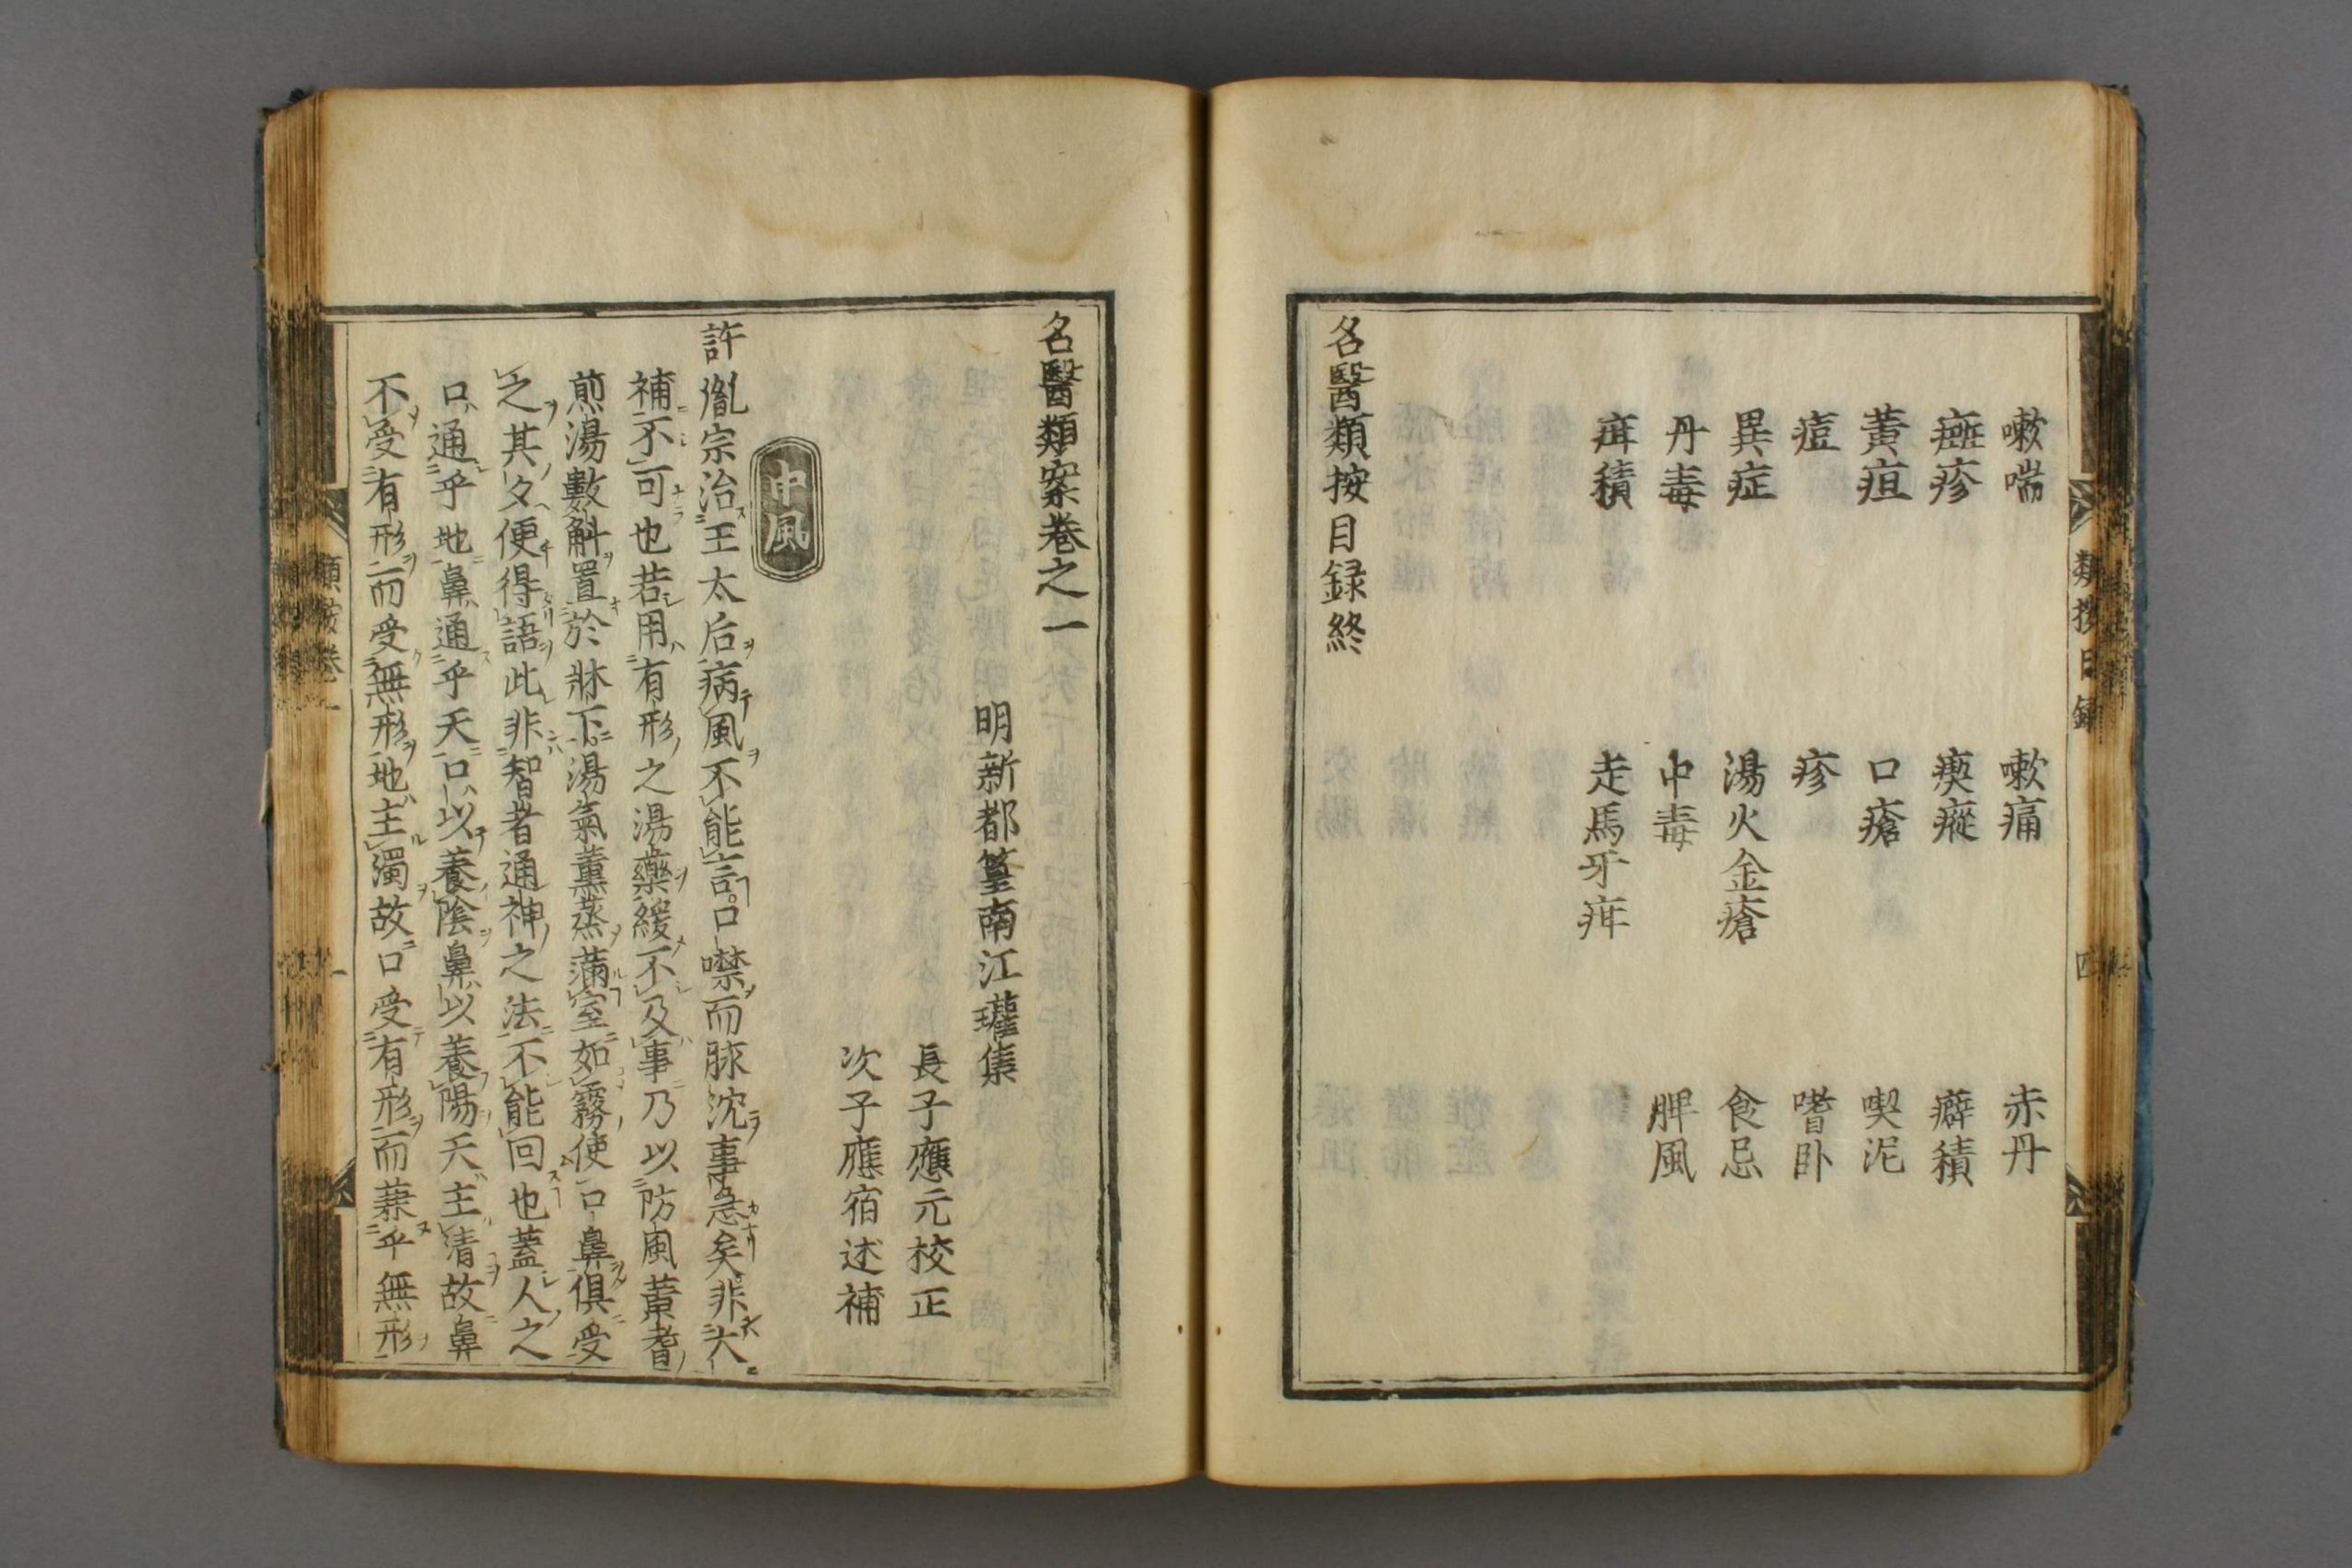 嗽喘 嗽痛 赤丹
疹 瘈瘲 癖積
黃疸 口瘡 喫泥
痘 疹 嗜卧
異症 湯火金瘡 食忌
丹毒 中毒 脾風
疳積 走馬牙疳
名醫類按目録終
類按目録 四
名醫類案卷之一
明新都篁南江瓘集
長子應元校正
次子應宿述補
中風
許胤宗治王太后病風不能言口噤而脉沈事急矣非大
補不可也若用有形之湯藥緩不及事乃以防風黃耆
煎湯數斛置於牀下湯氣薰蒸滿室如霧使口鼻俱受
之其夕便得語此非智者通神之法不能回也蓋人之
口通乎地鼻通乎天口以養陰鼻以養陽天主清故鼻
不受有形而受無形地主濁故口受有形而兼乎無形
類按卷一 一